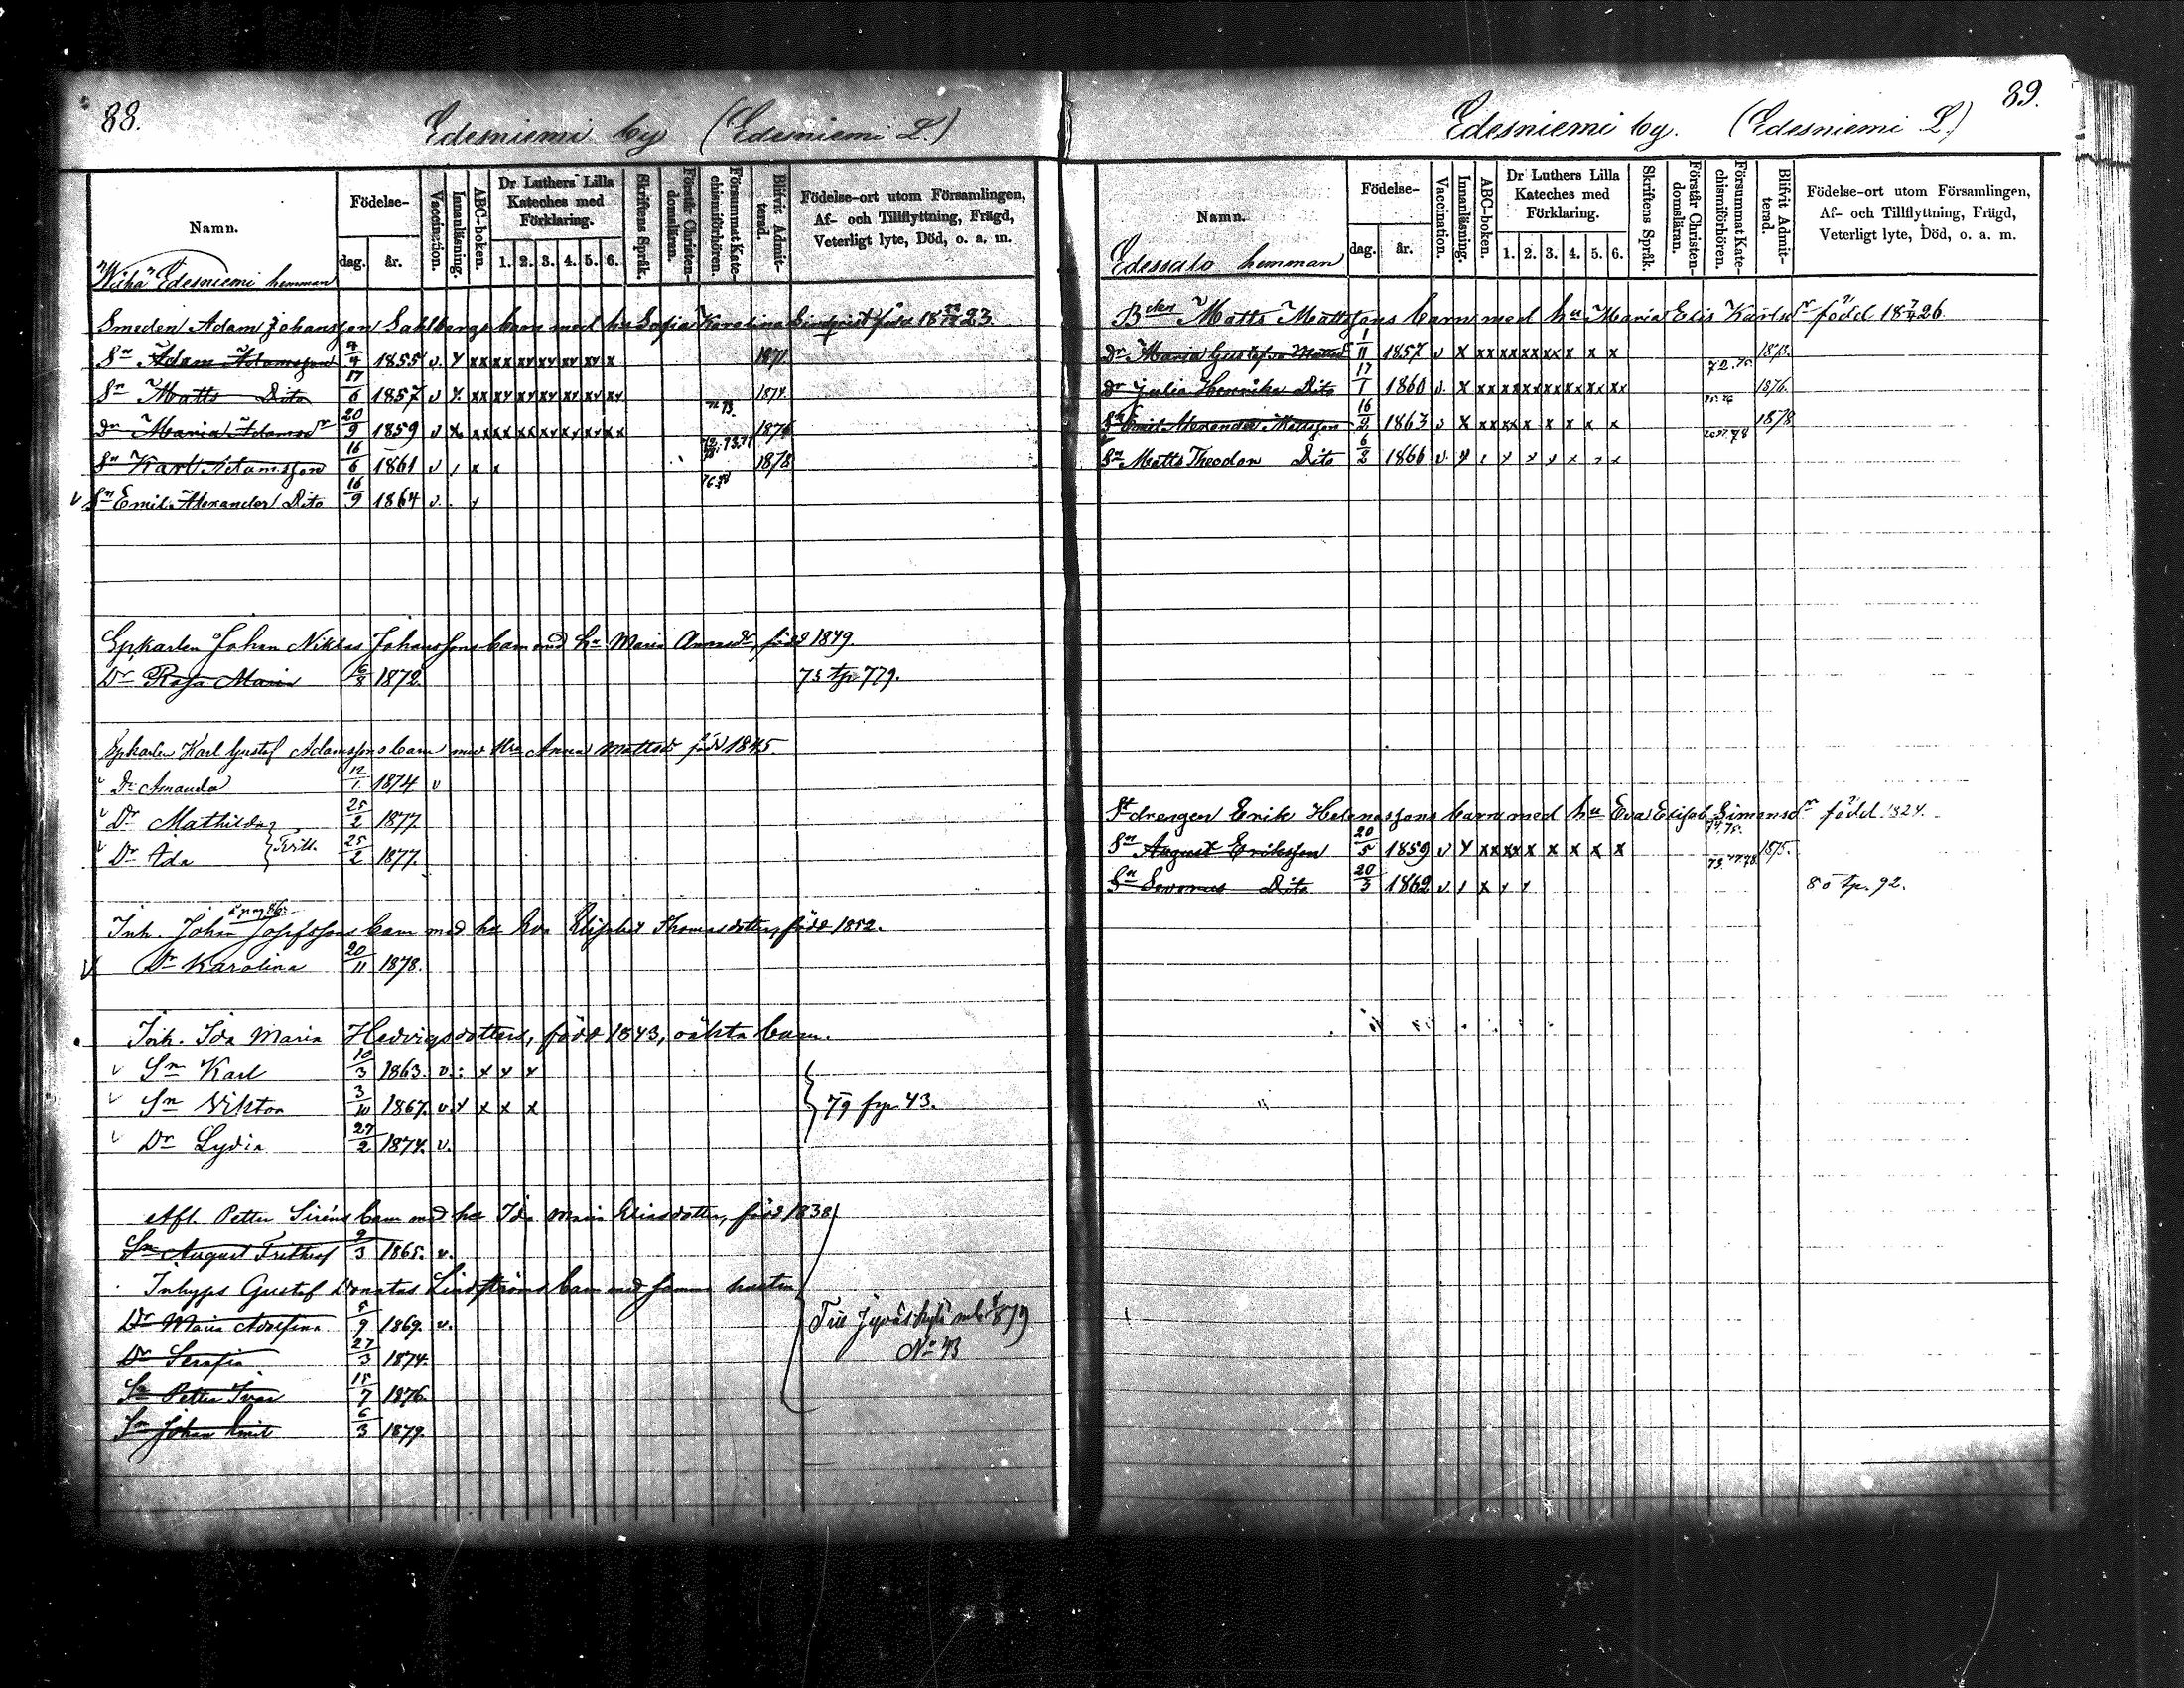 88.
Edesniemi by (Edesniemi L.)
Namn.
Födelse-
dag.
år.
Vaccination.
Innanläsning.
ABC-boken.
Dr Luthers Lilla Kateches med Förklaring.
1. 2. 3. 4. 5. 6.
Skriftens Språk.
Förstår Christen-domsläran.
Försummat Kate-chismiförhören.
Blifvit Admit-terad.
Födelse-ort utom Församlingen,
Af- och Tillflyttning, Frägd,
Veterligt lyte, Död, o. a. m.
"Wiha" Edesniemi hemman
Smeden Adam Johansson Sahlbergs barn med hu Sofia Karolina Lindqvist född 18 23.
Sn Adam Adamsson 4 1855 v. x xx xx xx xx xx x 1871
Sn Matts Dito 17/6 1857 v x xx xx xx xx xx xx 1874.
Dr Maria Adamsdr 20/9 1859 v x xx xx xx xx xx xx 1876
Sn Karl Adamsson 16/6 1861 v x x 1878
v Sn Emil Alexander Dito 16/9 1864 v.
Johan Niklas Johanssons barn med hu Maria född 1849.
Dr Maria 1872. 75 tp 779.
Karl Gustaf Adamssons barn med Anna Mattsdr född 1845
v Dr Amanda 12/1 1874 v
v Dr Mathilda 25/2 1877
v Dr Ada 25/2 1877.
Tvill.
Inh. Johan Josefssons barn med hu Eva Elisabet Thomasdotter, född 1852.
v Dr Karolina 20/11 1878.
Inh. Ida Maria Hedvigsdotters, född 1843, oäkta barn.
v Sn Karl 10/3 1863. v. x x x
v Sn Viktor 3/10 1867. v. x x x x
v Dr Lydia 27/2 1874. v.
79 43.
Afl. Petter Siréns barn med hu Ida Maria Eliasdotter, född 1838
Sn August Frithiof 9/3 1865. v.
Inhyses Gustaf Donatus Lindströms barn med samma hustru
Dr Maria Adolfina 5/9 1869. v.
Dr Serafia 27/3 1874.
Sn Petter Ivar 15/7 1876.
Sn Johan Emil 6/3 1879.
Till Jyväskylä
No 43
89.
Edesniemi by. (Edesniemi L.)
Namn.
Födelse-
dag.
år.
Vaccination.
Innanläsning.
ABC-boken.
Dr Luthers Lilla Kateches med Förklaring.
1. 2. 3. 4. 5. 6.
Skriftens Språk.
Förstår Christen-domsläran.
Försummat Kate-chismiförhören.
Blifvit Admit-terad.
Födelse-ort utom Församlingen,
Af- och Tillflyttning, Frägd,
Veterligt lyte, Död, o. a. m.
Edessalo hemman
Bden Matts Mattssons barn med hu Maria Elis Karlsdr född 18 26.
Dr Maria Gustafva Mattsdr 1/11 1857 v x xx xx xx xx x x x 1873.
72. 75.
Dr Julia Henrika Dito 17/1 1860 v. x xx xx xx xx xx xx xx 1876.
Sn Emil Alexander Mattsson 16/2 1863 v x xx xx x x x x x 1878
Sn Matts Theodor Dito 6/2 1866 v. x
Stdrengen Erik Helenassons barn med hu Eva Elisab. Simonsdr född 1824.
74. 75.
Sn August Eriksson 20/5 1859 v x xx xx x x x x x 1875.
Sn Dito 20/3 1862 v x x
80 tp. 92.